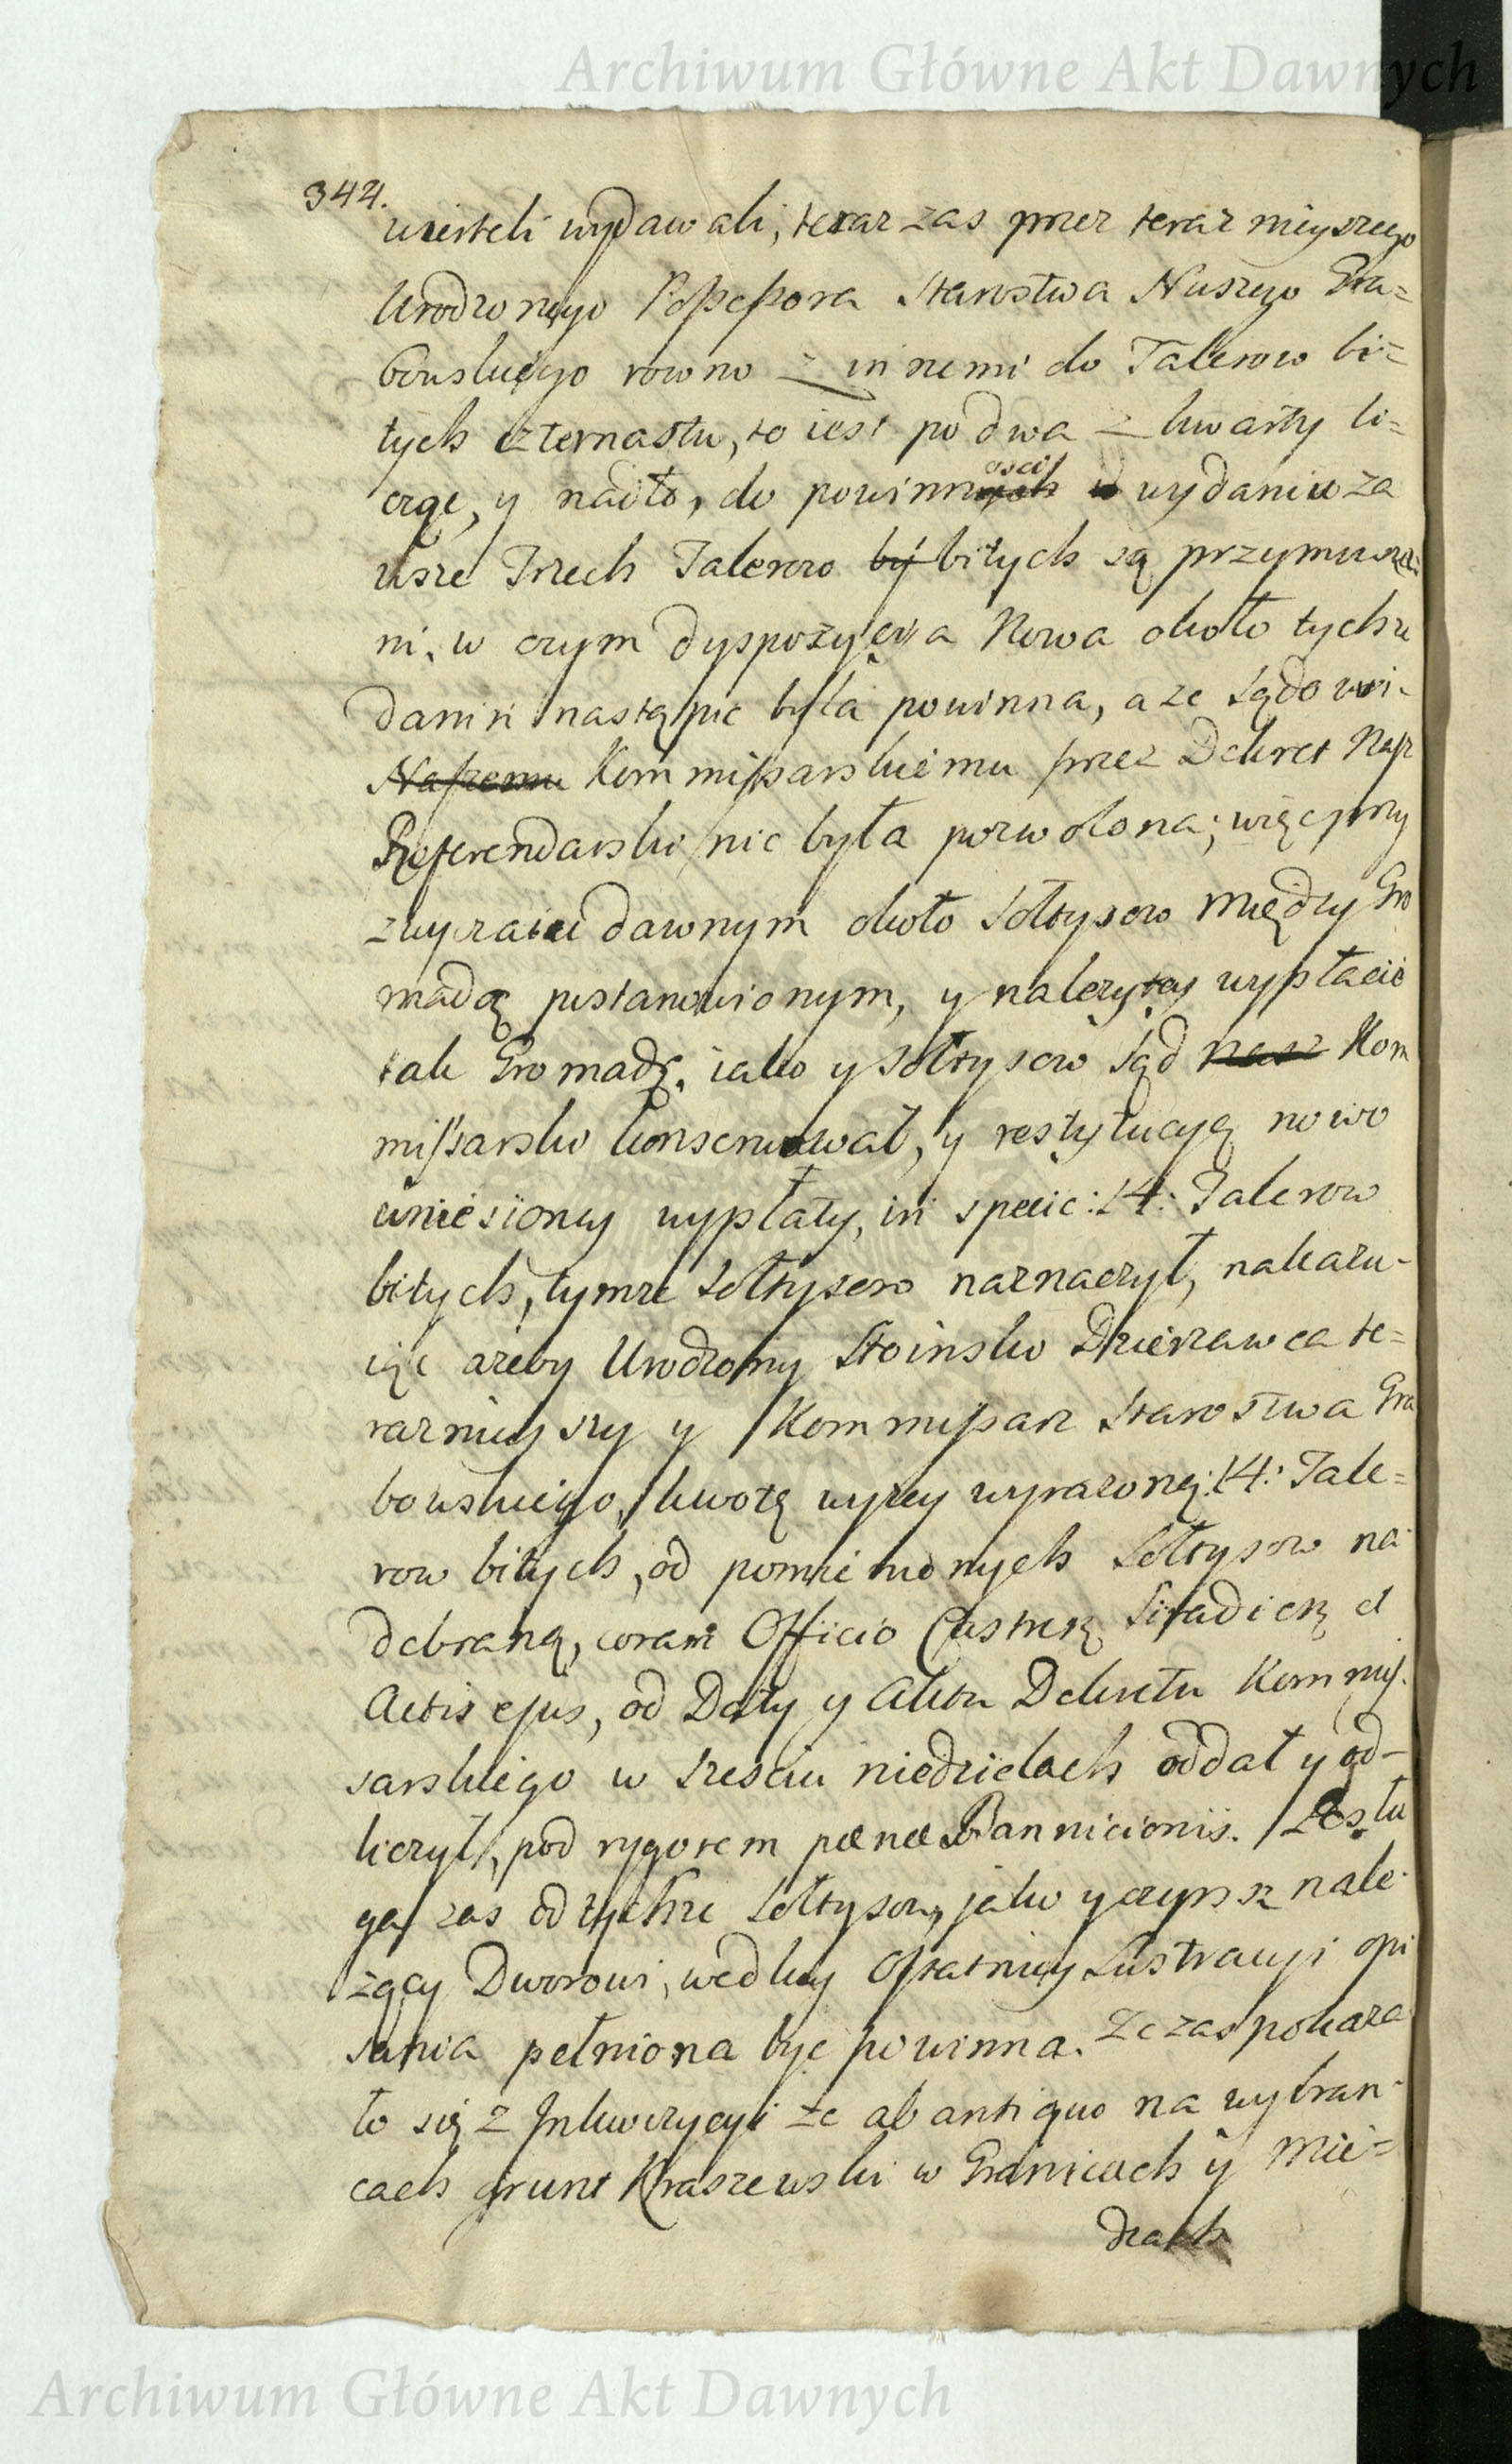 Archiwum Główne Akt Dawnych
344.
wierteli wydawali, teraz zas przez teraznieyszego
Urodzonego Possessora Starostwa Naszego Gra=
bowskiego rowno z innemi do Talerow bi=
tych czternastu, to iest po dwa z kwarty li=
cząc, y nadto, do powinnych osci w wydaniu za
wsze Trzech Talerow by bitych są przymusze
ni, w czym dyspozycya Nowa około tychze
danin nastąpic była powinna, a ze Sądowi
Naszemu Kommissarskiemu przez Dekret Nasz
Referendarski nie była pozwolona; więc przy
zwyczaiu dawnym około Sołtysow między Gro
madą postanowionym, y nalezytey wypłacie
tak Gromadę, iako y Sołtysow Sąd nasz Kom
missarski konserwował, y restytucyą nowo
wniesioney wypłaty, in specie: 14: Talerow
bitych, tymze Sołtysom naznaczył, nakazu-
iąc azeby Urodzony Stoinski Dzierzawca te=
raznieyszy y Kommissarz Starostwa Gra
bowskiego, kwotę wyzey wyrazoną: 14: Tale=
row bitych, od pomienionych Sołtysow na
debraną, coram Officio Castren: Siradien: et
Actis ejus, od Daty y Aktu Dekretu Kommis.
sarskiego w szesciu niedzielach oddał y od-
liczył, pod rygorem pænæ Bannicionis. Posłu
ga zas od tychze Sołtysow, jako y czynsz nale
zący Dworowi, według Ostatniey Lustracyi opi
sania pełniona byc powinna. Ze zas pokaza
ło się z Inkwizycyi ze ab antiquo na wybran-
cach grunt Kraszewski w Granicach y Mie=
dzach
Archiwum Główne Akt Dawnych